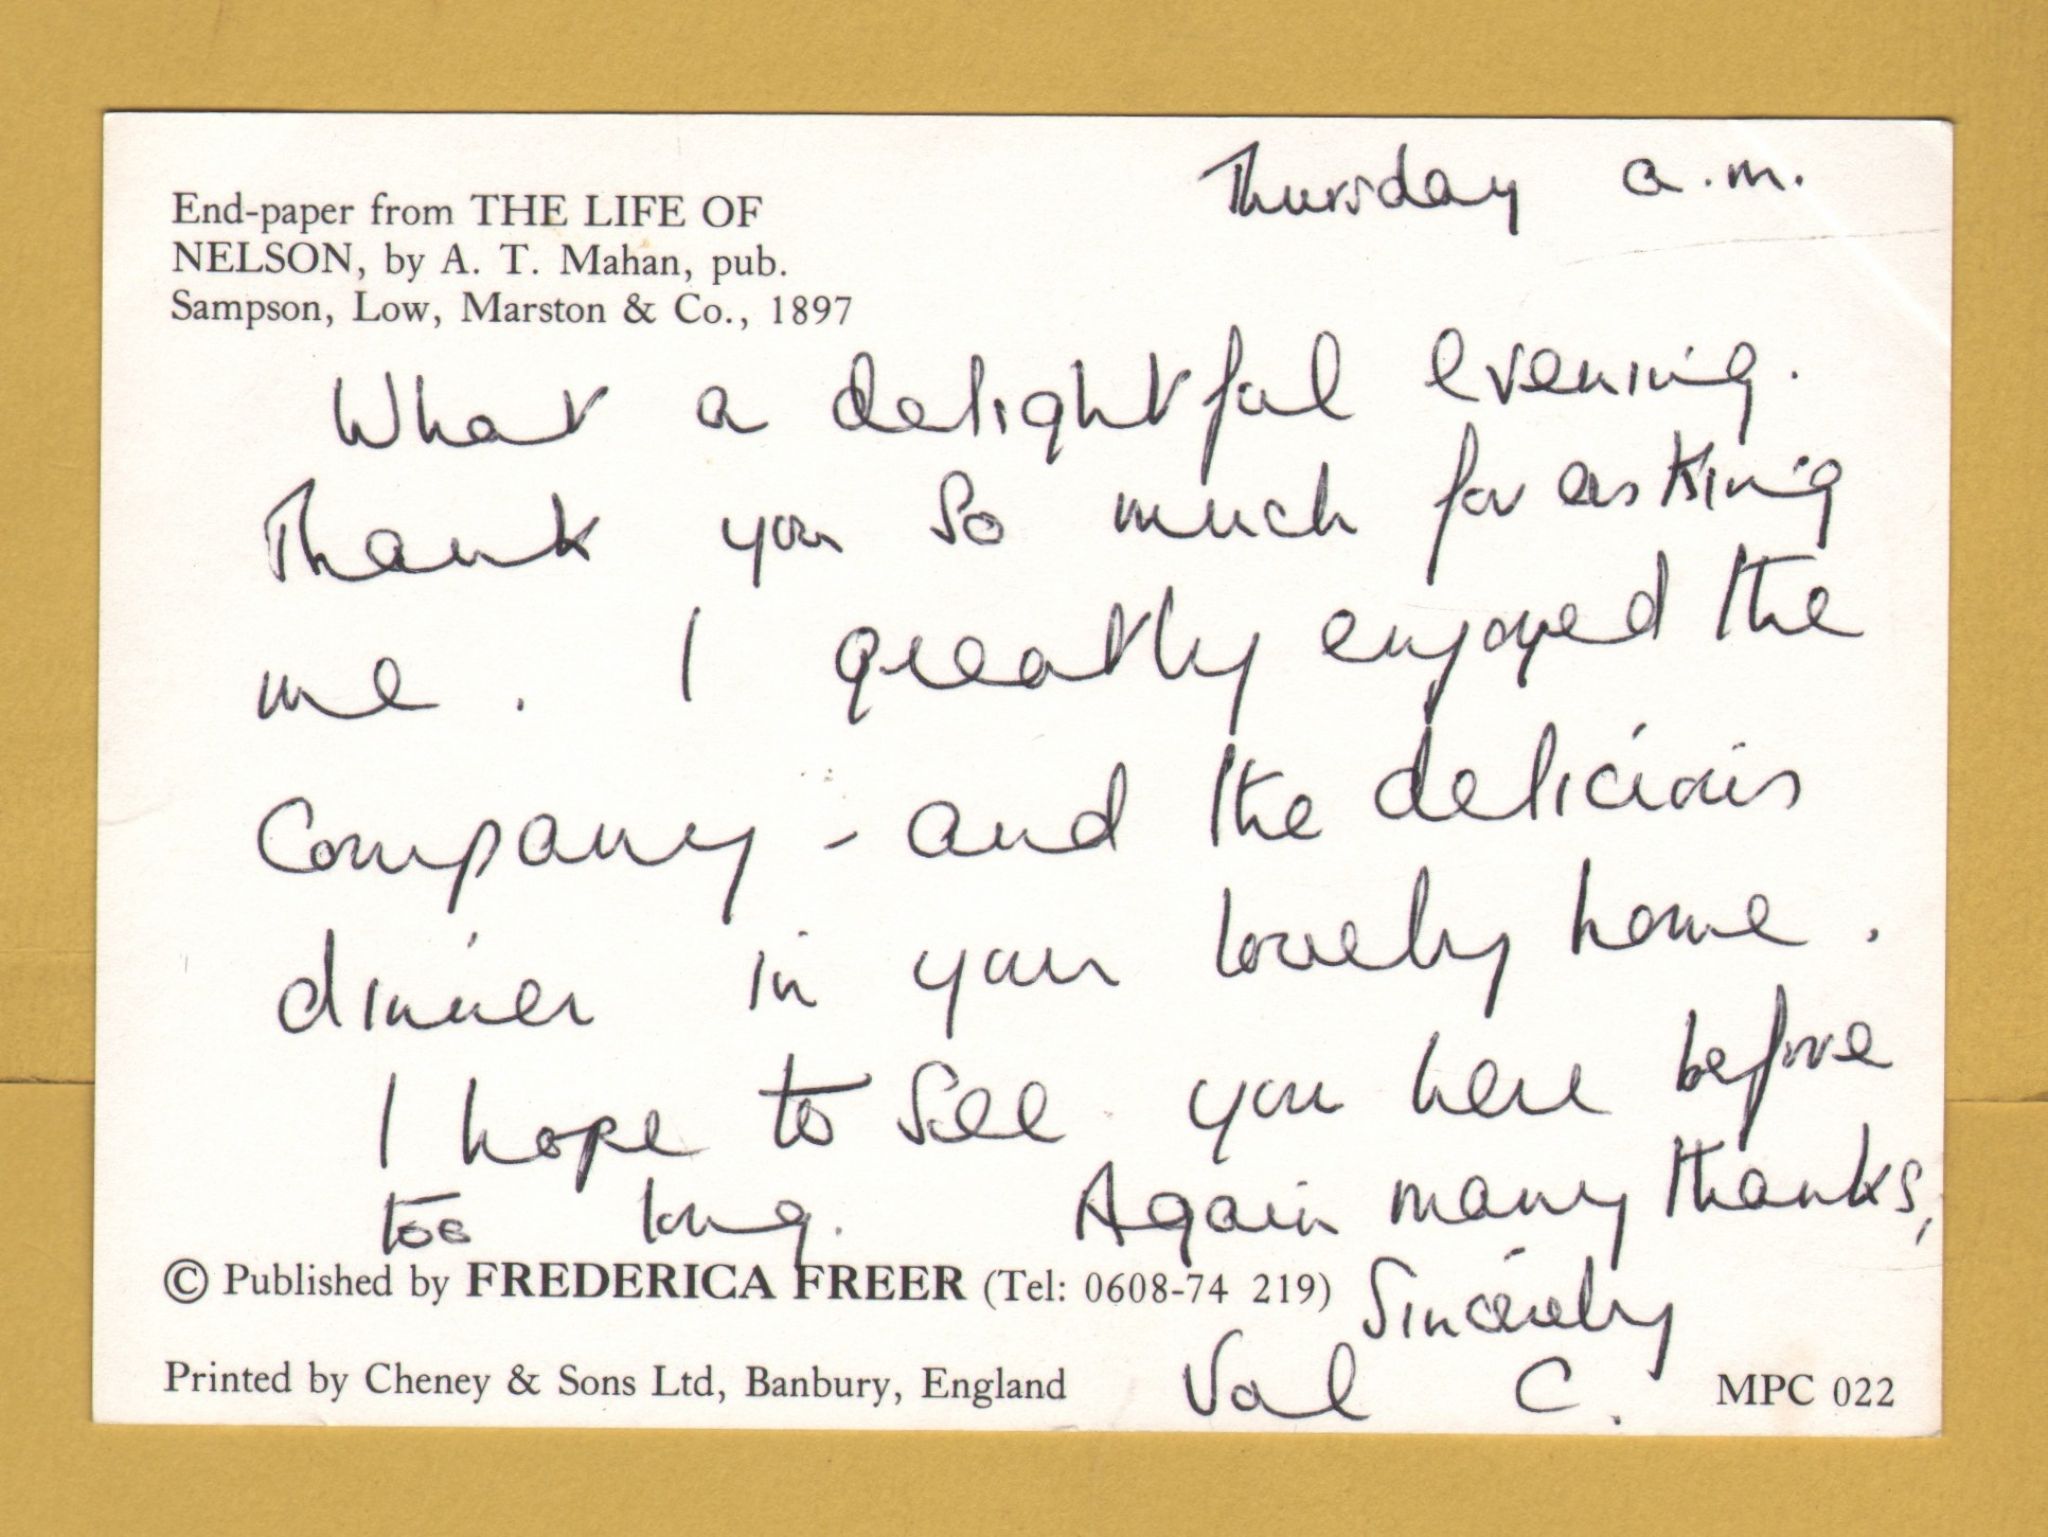 Thursday a.m.
End-paper from THE LIFE OF
NELSON, by A. T. Mahan, pub.
Sampson, Low, Marston & Co., 1897
What a delightful evening.
Thank you so much for asking
me. I greatly enjoyed the
Company - and the delicious
dinner in your lovely home.
I hope to see you here before
too long. Again many thanks,
© Published by FREDERICA FREER (Tel: 0608-74 219)
Sincerely
Val C.
Printed by Cheney & Sons Ltd, Banbury, England
MPC 022